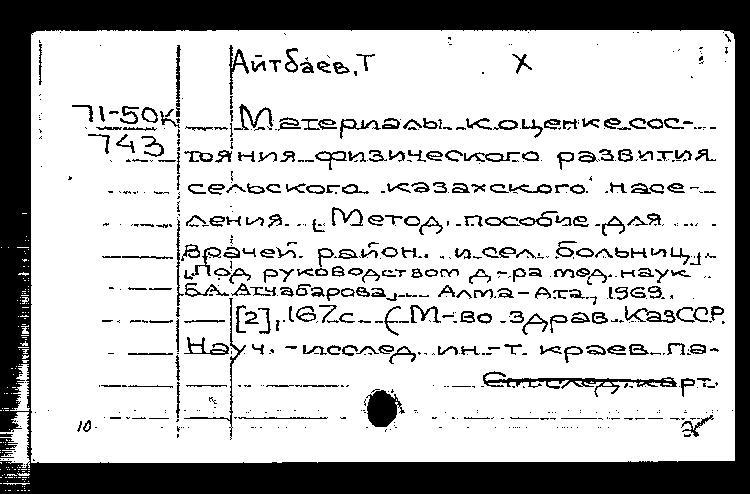 Айтбаев, Т Х
71-50к
743
Материалы к оценке сос-
тояния физического развития
сельского казахского насе-
ления. [Метод. пособие для
врачей район. и сел. больниц].
[Под руководством д-ра мед. наук
Б.А. Атчабарова]. Алма-Ата, 1969.
[2], 167с (М-во здрав. КазССР.
Науч.-исслед. ин.-т. краев. па-
См. след. карт.
10